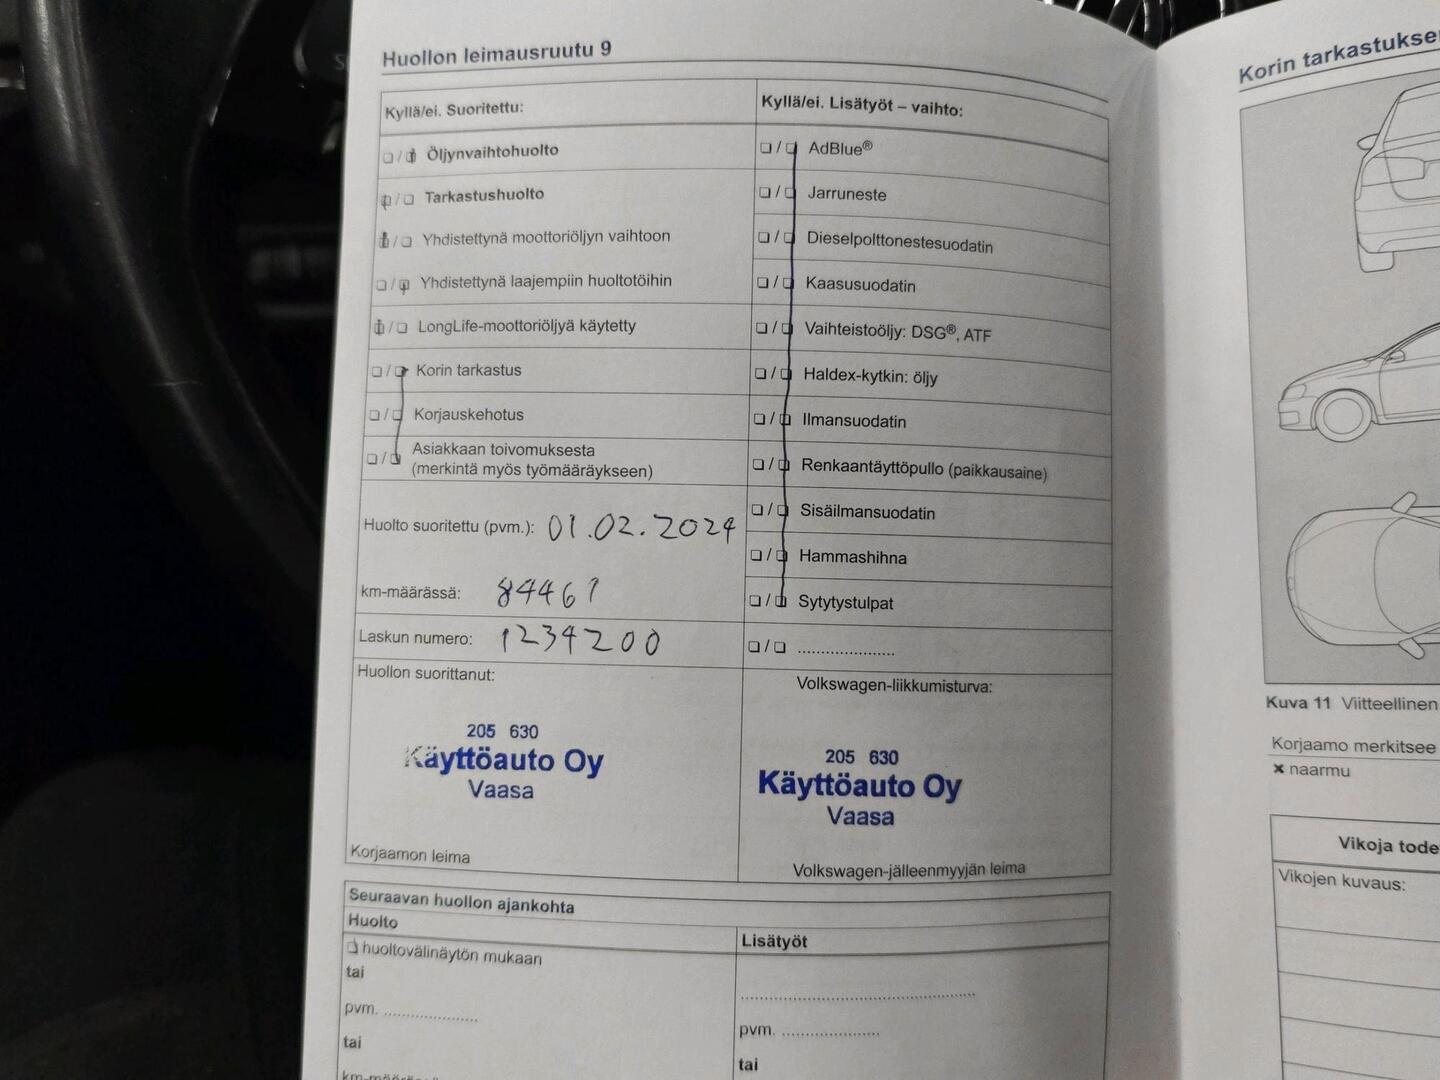 Huollon leimausruutu 9
Kyllä/ei. Suoritettu:
❏ / ❏ Öljynvaihtohuolto
❏ / ❏ Tarkastushuolto
❏ / ❏ Yhdistettynä moottoriöljyn vaihtoon
❏ / ❏ Yhdistettynä laajempiin huoltotöihin
❏ / ❏ LongLife-moottoriöljyä käytetty
❏ / ❏ Korin tarkastus
❏ / ❏ Korjauskehotus
❏ / ❏ Asiakkaan toivomuksesta
(merkintä myös työmääräykseen)
Huolto suoritettu (pvm.): 01.02.2024
km-määrässä: 84461
Laskun numero: 1234200
Huollon suorittanut:
205 630
Käyttöauto Oy
Vaasa
Korjaamon leima
Kyllä/ei. Lisätyöt – vaihto:
❏ / ❏ AdBlue®
❏ / ❏ Jarruneste
❏ / ❏ Dieselpolttonestesuodatin
❏ / ❏ Kaasusuodatin
❏ / ❏ Vaihteistoöljy: DSG®, ATF
❏ / ❏ Haldex-kytkin: öljy
❏ / ❏ Ilmansuodatin
❏ / ❏ Renkaantäyttöpullo (paikkausaine)
❏ / ❏ Sisäilmansuodatin
❏ / ❏ Hammashihna
❏ / ❏ Sytytystulpat
❏ / ❏ .....................
Volkswagen-liikkumisturva:
205 630
Käyttöauto Oy
Vaasa
Volkswagen-jälleenmyyjän leima
Seuraavan huollon ajankohta
Huolto
❏ huoltovälinäytön mukaan
tai
pvm. ....................
tai
Lisätyöt
..................................................
pvm. .....................
tai
Korin tarkastuksen
Kuva 11 Viitteellinen
Korjaamo merkitsee
✖ naarmu
Vikoja
Vikojen kuvaus: